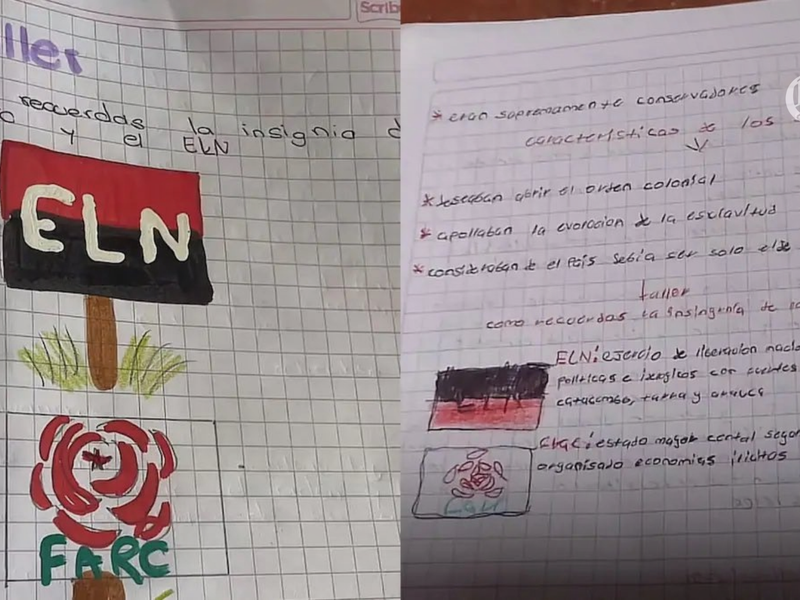 Scrib
ller
recuerdas la insignia d
o y el ELN
ELN
FARC
* eran supremamente conservadores
características de los
* deseaban abrir el orden colonial
* apollaban la evoracion de la esclavitud
* consideraban de el Pais debia ser solo
taller
como recuerdas la insingenia de
ELN: ejercio de liberacion nacio
politicas e
con fuentes
catacombo, tarra y arauca
estado mayor cental segu
organisado economias ilicitas